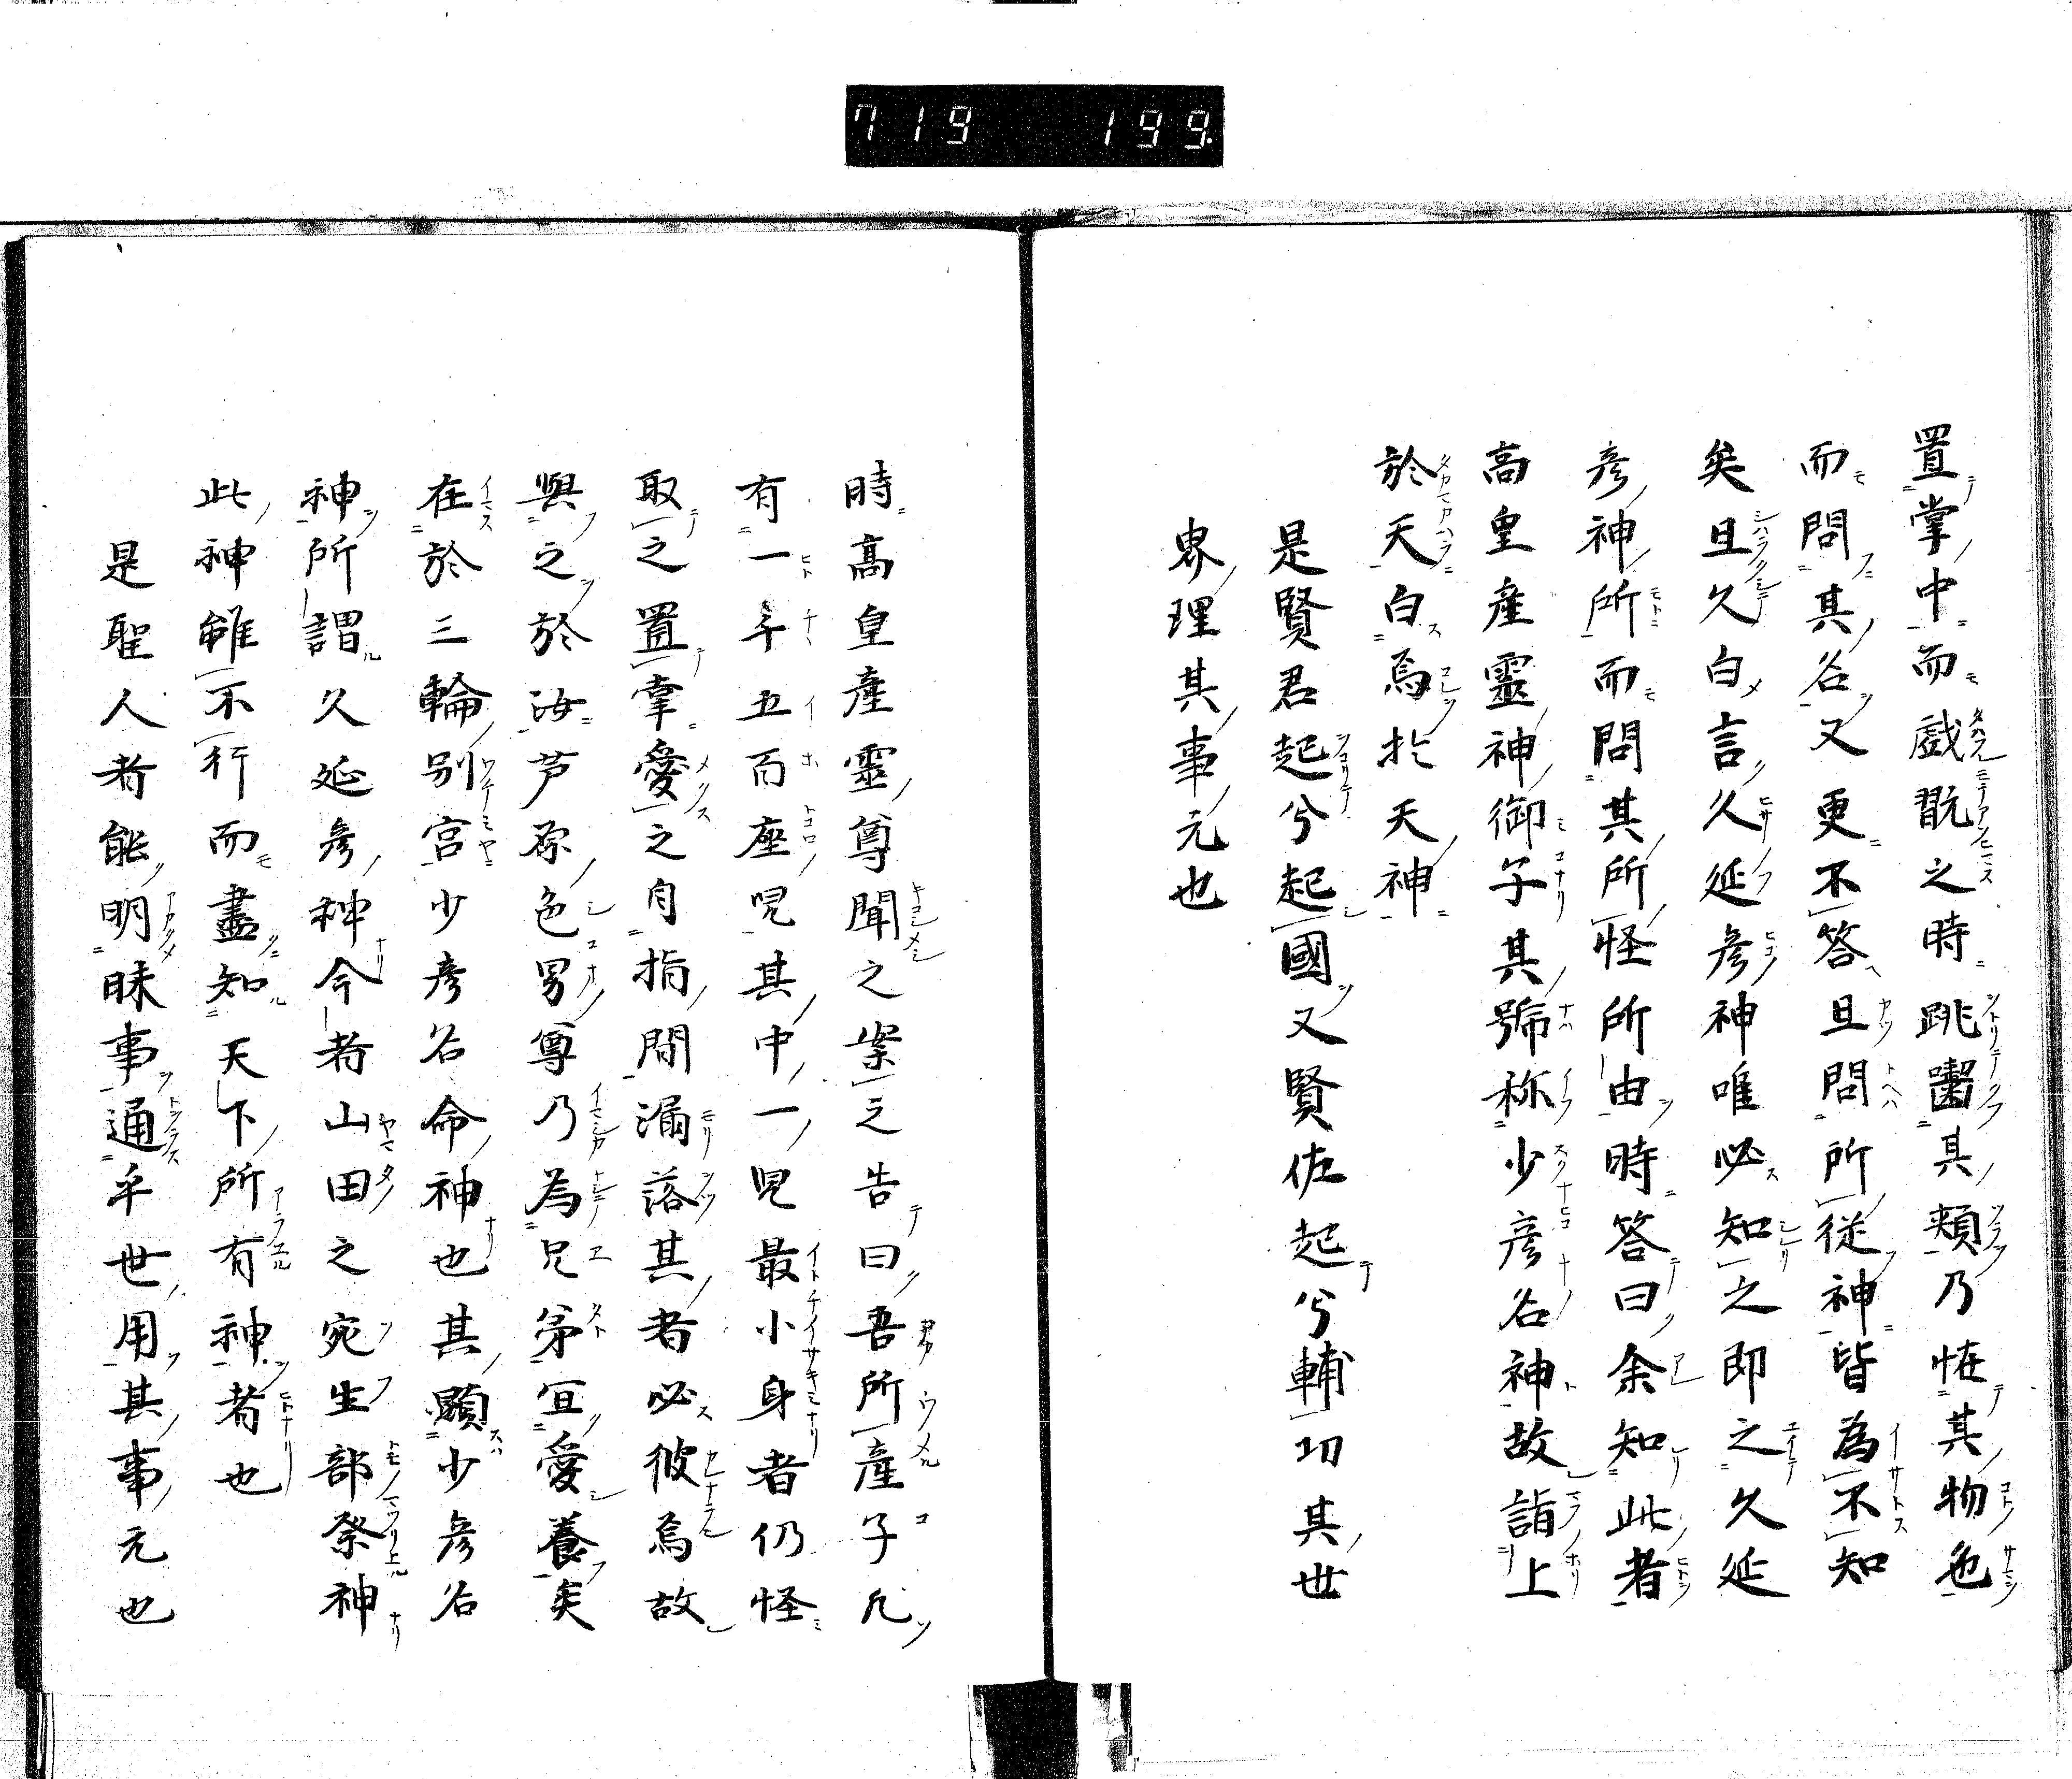 719 199
置掌中而戯翫之時跳齧其頬乃恠其物色
而問其名又更不答且問所従神皆為不知
矣且久白言久延彦神唯必知之即之久延
彦神所而問其所怪所由時答曰余知此者
高皇産靈神御子其號称少彦名神故詣上
於天白焉於天神
是賢君起兮起國又賢佐起兮輔功其世
界理其事元也
時高皇産靈尊聞之案之告曰吾所産子凡
有一千五百座児其中一児最小身者仍怪
取之置掌愛之自指間漏落其者必彼焉故
與之於汝芦原色男尊乃為兄弟宜愛養矣
在於三輪別宮少彦名命神也其顕少彦名
神所謂久延彦神今者山田之宛生部祭神
此神雖不行而盡知天下所有神者也
是聖人者能明昧事通乎世用其事元也